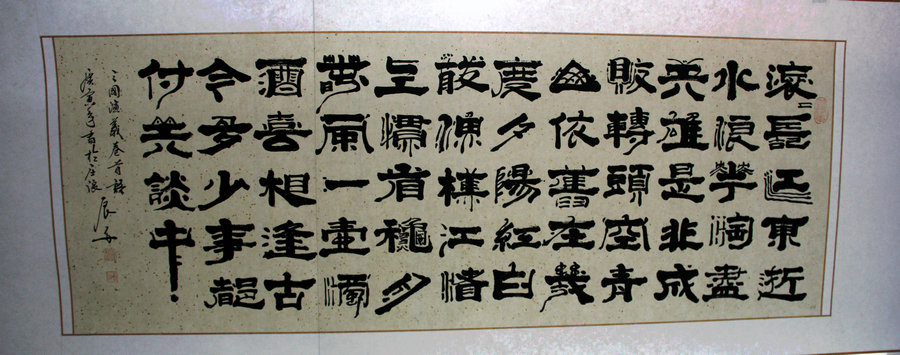 滚〻長江東逝
水浪花淘盡
英雄是非成
敗轉頭空青
山依舊在幾
度夕陽紅白
髮漁樵江渚
上慣看龝月
春風一壺濁
酒喜相逢古
今多少事都
付笑談中
三國演義卷首語
庚寅年書於庄浪 辰子